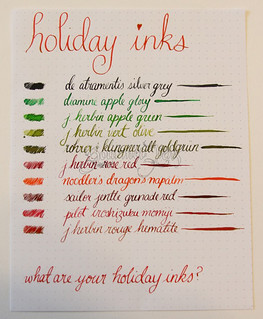 holiday inks
de atramentis silver grey
diamine apple glory
j herbin apple green
j herbin vert olive
rohrer & klingner alt goldgrun
j herbin rose red
noodler's dragon's napalm
sailor jentle grenade red
pilot iroshizuku momiji
j herbin rouge hematite
what are your holiday inks?